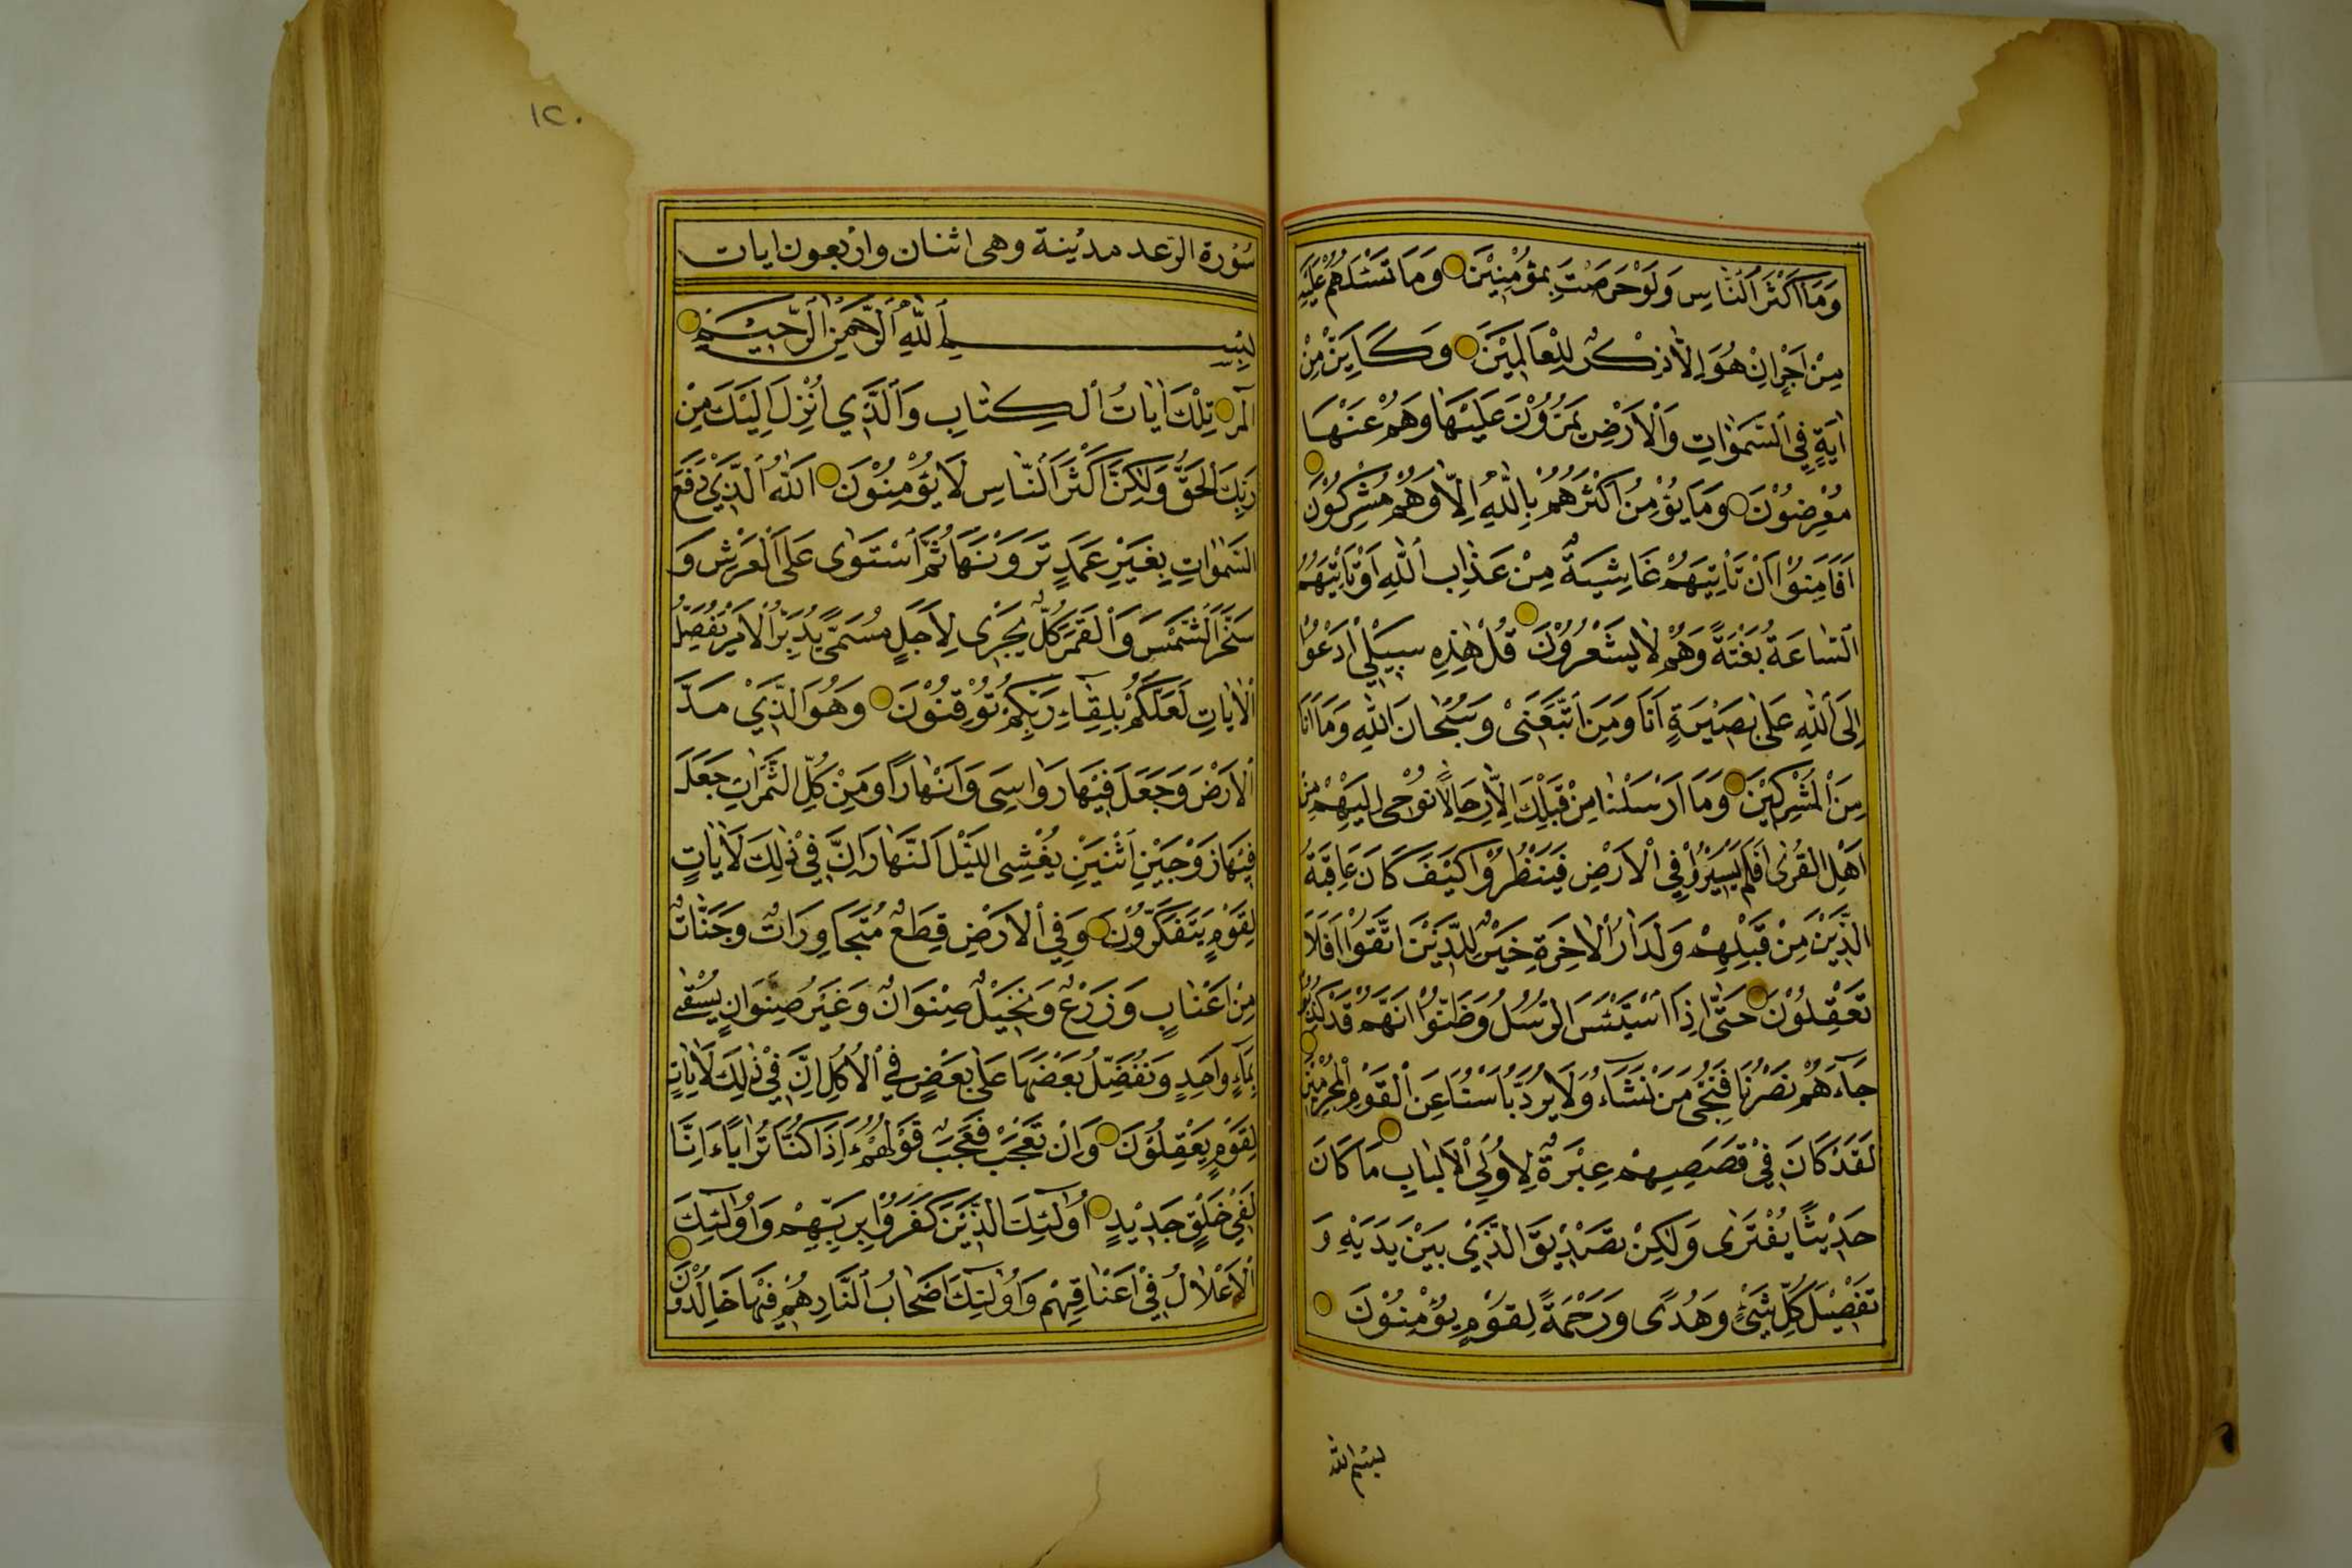 وَمَا اَكْثَرُ النَّاسِ وَلَوْ حَرَصْتَ بِمُؤْمِنِيْنَ وَمَا تَسْئَلُهُمْ عَلَيْهِ
مِنْ اَجْرٍ اِنْ هُوَ اِلَّا ذِكْرٌ لِلْعَالَمِيْنَ وَكَاَيِّنْ مِنْ
اٰيَةٍ فِي السَّمٰوَاتِ وَالْاَرْضِ يَمُرُّوْنَ عَلَيْهَا وَهُمْ عَنْهَا
مُعْرِضُوْنَ وَمَا يُؤْمِنُ اَكْثَرُهُمْ بِاللّٰهِ اِلَّا وَهُمْ مُشْرِكُوْنَ
اَفَاَمِنُوْا اَنْ تَاْتِيَهُمْ غَاشِيَةٌ مِنْ عَذَابِ اللّٰهِ اَوْ تَاْتِيَهُمُ
السَّاعَةُ بَغْتَةً وَهُمْ لَا يَشْعُرُوْنَ قُلْ هٰذِهِ سَبِيْلِيْ اَدْعُوْا
اِلَى اللّٰهِ عَلٰى بَصِيْرَةٍ اَنَا وَمَنِ اتَّبَعَنِيْ وَسُبْحَانَ اللّٰهِ وَمَا اَنَا
مِنَ الْمُشْرِكِيْنَ وَمَا اَرْسَلْنَا مِنْ قَبْلِكَ اِلَّا رِجَالًا نُوْحِى اِلَيْهِمْ مِنْ
اَهْلِ الْقُرٰى اَفَلَمْ يَسِيْرُوْا فِي الْاَرْضِ فَيَنْظُرُوْا كَيْفَ كَانَ عَاقِبَةُ
الَّذِيْنَ مِنْ قَبْلِهِمْ وَلَدَارُ الْاٰخِرَةِ خَيْرٌ لِلَّذِيْنَ اتَّقَوْا اَفَلَا
تَعْقِلُوْنَ حَتّٰى اِذَا اسْتَيْئَسَ الرُّسُلُ وَظَنُّوْا اَنَّهُمْ قَدْ كُذِبُوْا
جَآءَهُمْ نَصْرُنَا فَنُجِّىَ مَنْ نَشَآءُ وَلَا يُرَدُّ بَاْسُنَا عَنِ الْقَوْمِ الْمُجْرِمِيْنَ
لَقَدْ كَانَ فِيْ قَصَصِهِمْ عِبْرَةٌ لِاُولِي الْاَلْبَابِ مَا كَانَ
حَدِيْثًا يُفْتَرٰى وَلٰكِنْ تَصْدِيْقَ الَّذِيْ بَيْنَ يَدَيْهِ وَ
تَفْصِيْلَ كُلِّ شَيْءٍ وَهُدًى وَرَحْمَةً لِقَوْمٍ يُؤْمِنُوْنَ
بسم الله
١٢٠
سُوْرَة الرّعد مدينة وهى اثنان واربعون ايات
بِسْمِ اللّٰهِ الرَّحْمٰنِ الرَّحِيْمِ
الٓمّرٰ تِلْكَ اٰيَاتُ الْكِتَابِ وَالَّذِيْ اُنْزِلَ اِلَيْكَ مِنْ
رَبِّكَ الْحَقُّ وَلٰكِنَّ اَكْثَرَ النَّاسِ لَا يُؤْمِنُوْنَ اَللّٰهُ الَّذِيْ رَفَعَ
السَّمٰوَاتِ بِغَيْرِ عَمَدٍ تَرَوْنَهَا ثُمَّ اسْتَوٰى عَلَى الْعَرْشِ وَ
سَخَّرَ الشَّمْسَ وَالْقَمَرَ كُلٌّ يَجْرِى لِاَجَلٍ مُسَمًّى يُدَبِّرُ الْاَمْرَ يُفَصِّلُ
الْاٰيَاتِ لَعَلَّكُمْ بِلِقَآءِ رَبِّكُمْ تُوْقِنُوْنَ وَهُوَ الَّذِيْ مَدَّ
الْاَرْضَ وَجَعَلَ فِيْهَا رَوَاسِىَ وَاَنْهَارًا وَمِنْ كُلِّ الثَّمَرَاتِ جَعَلَ
فِيْهَا زَوْجَيْنِ اثْنَيْنِ يُغْشِى الَّيْلَ النَّهَارَ اِنَّ فِيْ ذٰلِكَ لَاٰيَاتٍ
لِقَوْمٍ يَتَفَكَّرُوْنَ وَفِي الْاَرْضِ قِطَعٌ مُتَجَاوِرَاتٌ وَجَنَّاتٌ
مِنْ اَعْنَابٍ وَزَرْعٌ وَنَخِيْلٌ صِنْوَانٌ وَغَيْرُ صِنْوَانٍ يُسْقٰى
بِمَآءٍ وَاحِدٍ وَنُفَضِّلُ بَعْضَهَا عَلٰى بَعْضٍ فِي الْاُكُلِ اِنَّ فِيْ ذٰلِكَ لَاٰيَاتٍ
لِقَوْمٍ يَعْقِلُوْنَ وَاِنْ تَعْجَبْ فَعَجَبٌ قَوْلُهُمْ ءَاِذَا كُنَّا تُرَابًا ءَاِنَّا
لَفِيْ خَلْقٍ جَدِيْدٍ اُولٰٓئِكَ الَّذِيْنَ كَفَرُوْا بِرَبِّهِمْ وَاُولٰٓئِكَ
الْاَغْلَالُ فِيْ اَعْنَاقِهِمْ وَاُولٰٓئِكَ اَصْحَابُ النَّارِ هُمْ فِيْهَا خَالِدُوْنَ